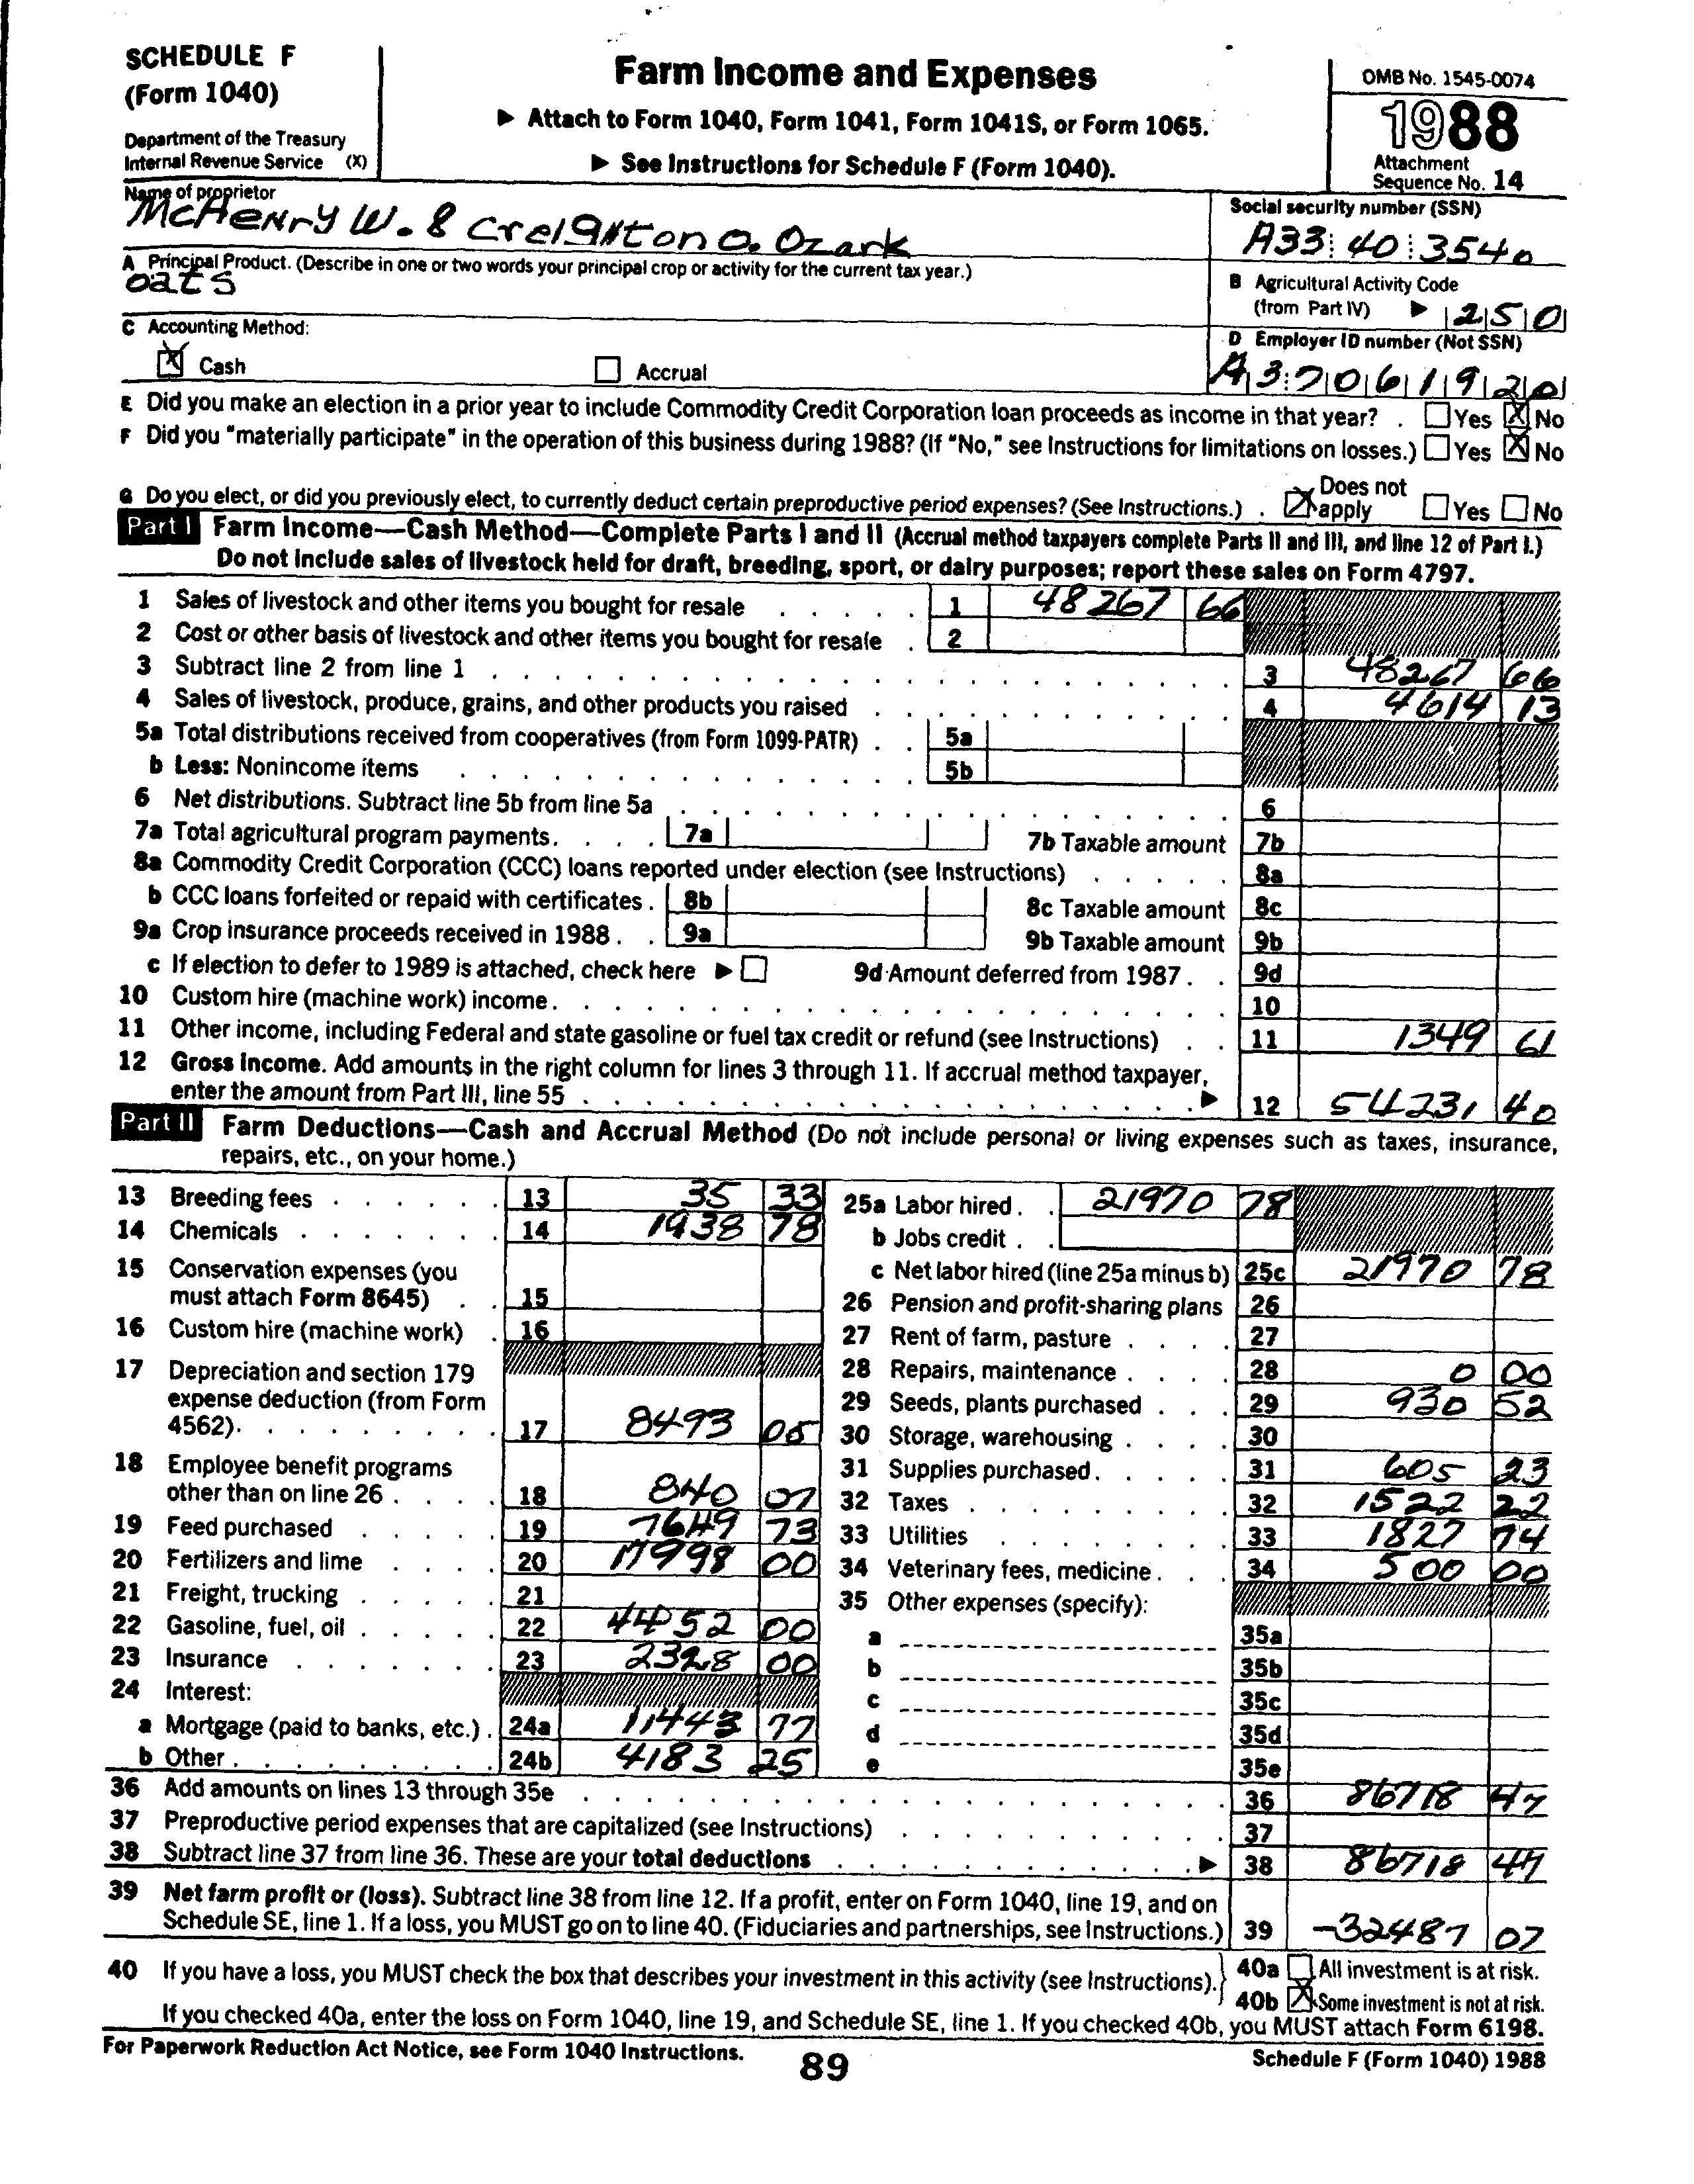 SCHEDULE F
(Form 1040)
Department of the Treasury
Internal Revenue Service (X)
Farm Income and Expenses
▶ Attach to Form 1040, Form 1041, Form 1041S, or Form 1065.
▶ See Instructions for Schedule F (Form 1040).
OMB No. 1545-0074
1988
Attachment
Sequence No. 14
Name of proprietor
McHenry W. & Creighton O. Ozark
Social security number (SSN)
A33 40 3540
A Principal Product. (Describe in one or two words your principal crop or activity for the current tax year.)
oats
B Agricultural Activity Code
(from Part IV) ▶ 250
C Accounting Method:
Cash Accrual
D Employer ID number (Not SSN)
A37061920
E Did you make an election in a prior year to include Commodity Credit Corporation loan proceeds as income in that year? . Yes X No
F Did you "materially participate" in the operation of this business during 1988? (If "No," see Instructions for limitations on losses.) Yes X No
G Do you elect, or did you previously elect, to currently deduct certain preproductive period expenses? (See Instructions.) . X Does not apply Yes No
Part I Farm Income—Cash Method—Complete Parts I and II (Accrual method taxpayers complete Parts II and III, and line 12 of Part I.)
Do not include sales of livestock held for draft, breeding, sport, or dairy purposes; report these sales on Form 4797.
1 Sales of livestock and other items you bought for resale 1 48267 66
2 Cost or other basis of livestock and other items you bought for resale 2
3 Subtract line 2 from line 1 3 48267 66
4 Sales of livestock, produce, grains, and other products you raised 4 4614 13
5a Total distributions received from cooperatives (from Form 1099-PATR) 5a
b Less: Nonincome items 5b
6 Net distributions. Subtract line 5b from line 5a 6
7a Total agricultural program payments. 7a 7b Taxable amount 7b
8a Commodity Credit Corporation (CCC) loans reported under election (see Instructions) 8a
b CCC loans forfeited or repaid with certificates . 8b 8c Taxable amount 8c
9a Crop insurance proceeds received in 1988 . 9a 9b Taxable amount 9b
c If election to defer to 1989 is attached, check here ▶ 9d Amount deferred from 1987 . 9d
10 Custom hire (machine work) income. 10
11 Other income, including Federal and state gasoline or fuel tax credit or refund (see Instructions) 11 1349 61
12 Gross income. Add amounts in the right column for lines 3 through 11. If accrual method taxpayer,
enter the amount from Part III, line 55 ▶ 12 54231 40
Part II Farm Deductions—Cash and Accrual Method (Do not include personal or living expenses such as taxes, insurance,
repairs, etc., on your home.)
13 Breeding fees 13 35 33
14 Chemicals 14 1938 78
15 Conservation expenses (you
must attach Form 8645) 15
16 Custom hire (machine work) 16
17 Depreciation and section 179
expense deduction (from Form
4562). 17 8493 05
18 Employee benefit programs
other than on line 26 . 18 840 07
19 Feed purchased 19 7649 73
20 Fertilizers and lime 20 17998 00
21 Freight, trucking 21
22 Gasoline, fuel, oil 22 4452 00
23 Insurance 23 2328 00
24 Interest:
a Mortgage (paid to banks, etc.) . 24a 11443 77
b Other . 24b 4183 25
25a Labor hired . 21970 78
b Jobs credit .
c Net labor hired (line 25a minus b) 25c 21970 78
26 Pension and profit-sharing plans 26
27 Rent of farm, pasture 27
28 Repairs, maintenance 28 0 00
29 Seeds, plants purchased 29 930 52
30 Storage, warehousing 30
31 Supplies purchased. 31 605 23
32 Taxes 32 1522 22
33 Utilities 33 1827 74
34 Veterinary fees, medicine . 34 500 00
35 Other expenses (specify):
a 35a
b 35b
c 35c
d 35d
e 35e
36 Add amounts on lines 13 through 35e 36 86718 47
37 Preproductive period expenses that are capitalized (see Instructions) 37
38 Subtract line 37 from line 36. These are your total deductions ▶ 38 86718 47
39 Net farm profit or (loss). Subtract line 38 from line 12. If a profit, enter on Form 1040, line 19, and on
Schedule SE, line 1. If a loss, you MUST go on to line 40. (Fiduciaries and partnerships, see Instructions.) 39 -32487 07
40 If you have a loss, you MUST check the box that describes your investment in this activity (see Instructions). 40a All investment is at risk.
40b X Some investment is not at risk.
If you checked 40a, enter the loss on Form 1040, line 19, and Schedule SE, line 1. If you checked 40b, you MUST attach Form 6198.
For Paperwork Reduction Act Notice, see Form 1040 Instructions.
89
Schedule F (Form 1040) 1988